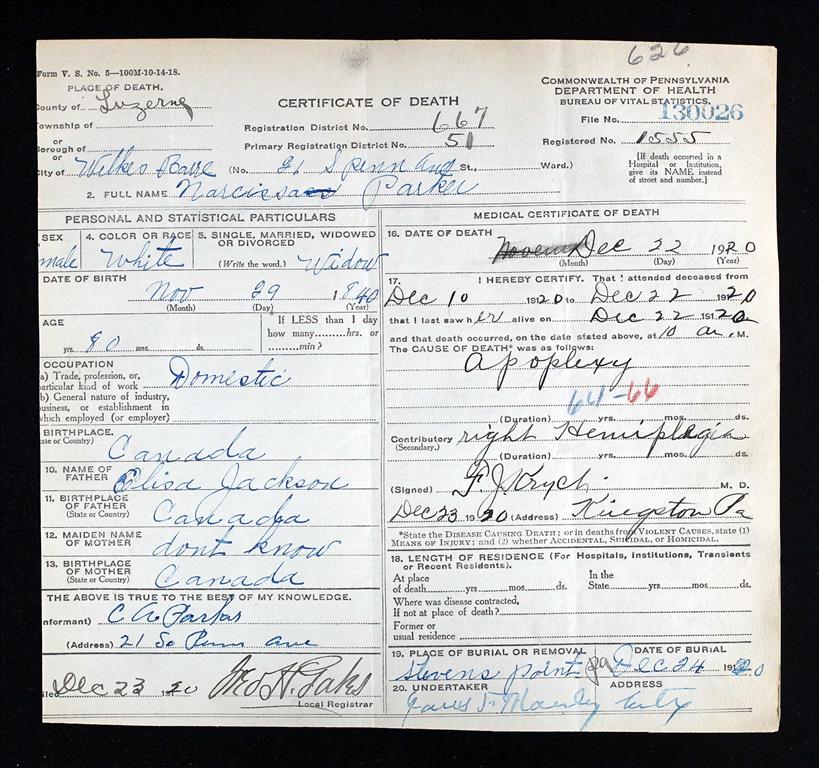 626
Form V. S. No. 5—100M-10-14-18.
PLACE OF DEATH.
County of Luzerne
Township of
or
Borough of
or
City of Wilkes Barre (No. 21 S Penn Ave St., Ward.)
CERTIFICATE OF DEATH
Registration District No. 667
Primary Registration District No. 51
COMMONWEALTH OF PENNSYLVANIA
DEPARTMENT OF HEALTH
BUREAU OF VITAL STATISTICS.
File No. 130026
Registered No. 1555
[If death occurred in a
Hospital or Institution,
give its NAME instead
of street and number.]
2. FULL NAME Narcissa Parker
PERSONAL AND STATISTICAL PARTICULARS
SEX
male
4. COLOR OR RACE
White
5. SINGLE, MARRIED, WIDOWED
OR DIVORCED
(Write the word.) Widow
DATE OF BIRTH
Nov 29 1840
(Month) (Day) (Year)
AGE
yrs. 80 mos. ds.
If LESS than 1 day
how many hrs. or
min?
OCCUPATION
a) Trade, profession, or,
particular kind of work Domestic
b) General nature of industry,
business, or establishment in
which employed (or employer)
BIRTHPLACE.
(State or Country) Canada
10. NAME OF
FATHER Elisa Jackson
11. BIRTHPLACE
OF FATHER
(State or Country) Canada
12. MAIDEN NAME
OF MOTHER dont know
13. BIRTHPLACE
OF MOTHER
(State or Country) Canada
THE ABOVE IS TRUE TO THE BEST OF MY KNOWLEDGE.
nformant) C A Parks
(Address) 21 So Penn ave
Filed Dec 23 1920
Local Registrar
MEDICAL CERTIFICATE OF DEATH
16. DATE OF DEATH
Dec 22 1920
(Month) (Day) (Year)
17. I HEREBY CERTIFY. That I attended deceased from
Dec 10 1920 to Dec 22 1920
that I last saw her alive on Dec 22 1920
and that death occurred, on the date stated above, at 10 a. M.
The CAUSE OF DEATH* was as follows:
apoplexy
64-66
(Duration) yrs. mos. ds.
Contributory right Hemiplegia
(Secondary.)
(Duration) yrs. mos. ds.
(Signed) F. J. Krych M. D.
Dec 23 1920 (Address) Kingston Pa
*State the DISEASE CAUSING DEATH; or in deaths from VIOLENT CAUSES, state (1)
MEANS OF INJURY; and (2) whether ACCIDENTAL, SUICIDAL, or HOMICIDAL.
18. LENGTH OF RESIDENCE (For Hospitals, Institutions, Transients
or Recent Residents).
At place In the
of death yrs. mos. ds. State yrs. mos. ds.
Where was disease contracted,
If not at place of death?
Former or
usual residence
19. PLACE OF BURIAL OR REMOVAL
Stevens Point Pa
DATE OF BURIAL
Dec 24 1920
20. UNDERTAKER
ADDRESS
City